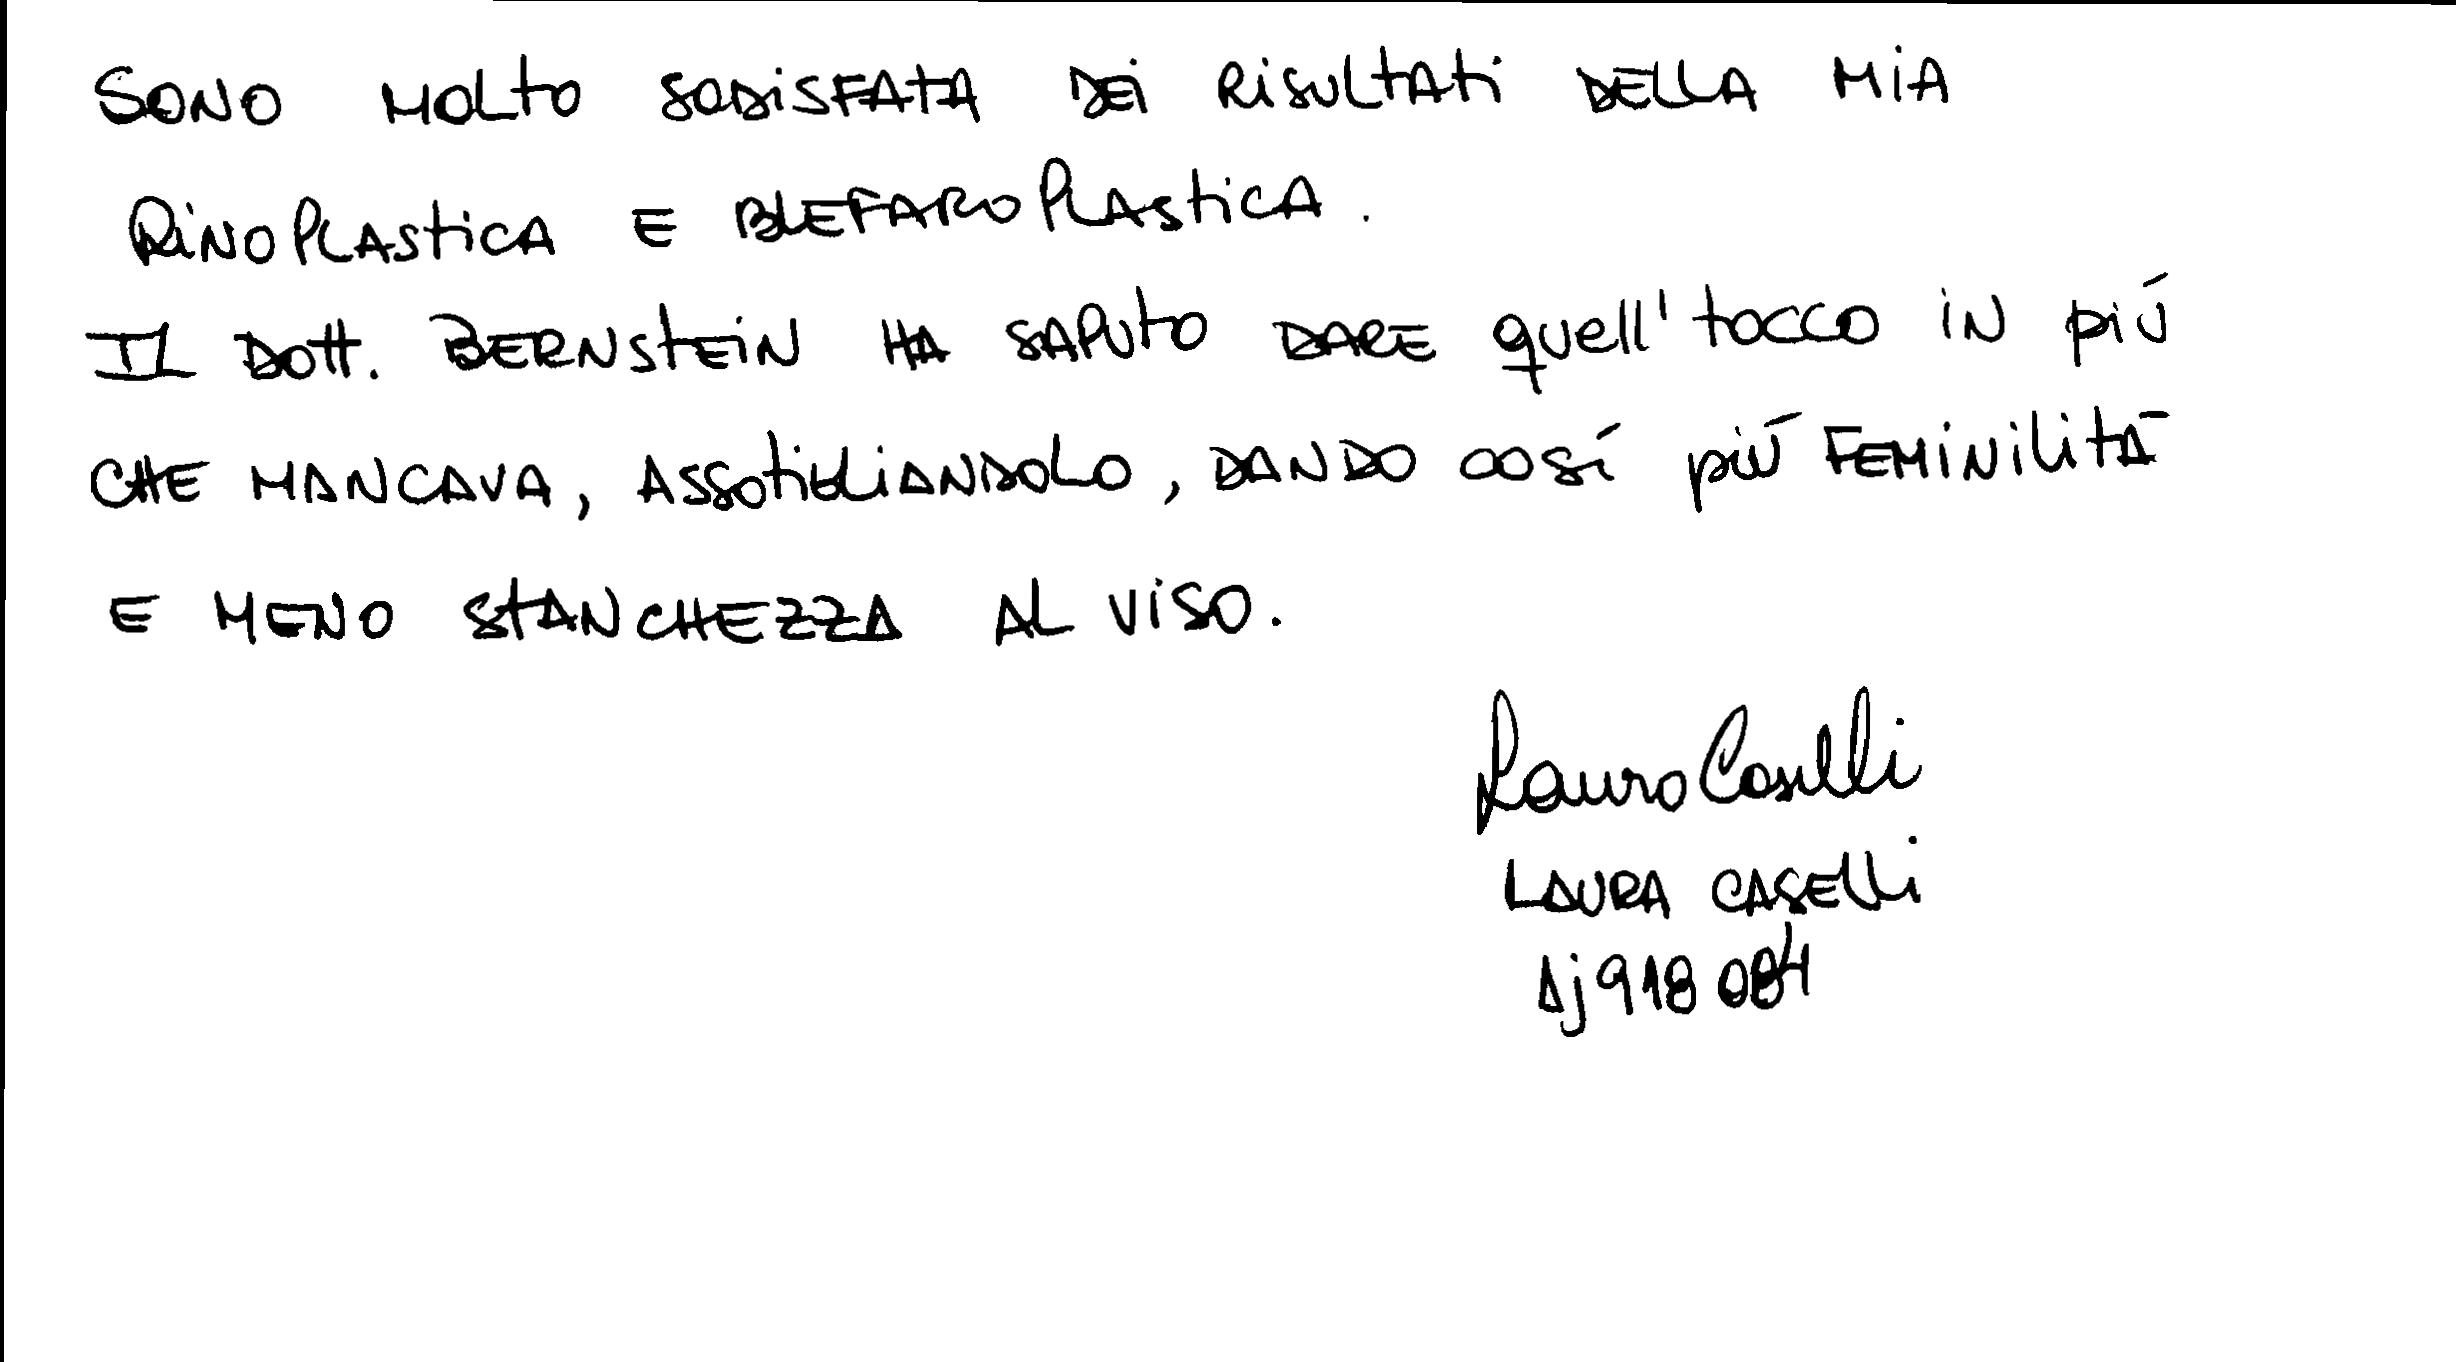 SONO MOLTO SODISFATA DEI RISULTATI DELLA MIA
RINOPLASTICA E BLEFAROPLASTICA.
IL DOTT. BERNSTEIN HA SAPUTO DARE quell' tocco IN più
CHE MANCAVA, ASSOTIGLIANDOLO, DANDO così più FEMINILITÀ
E MENO STANCHEZZA AL VISO.
Laura Caselli
LAURA CASELLI
AJ918084